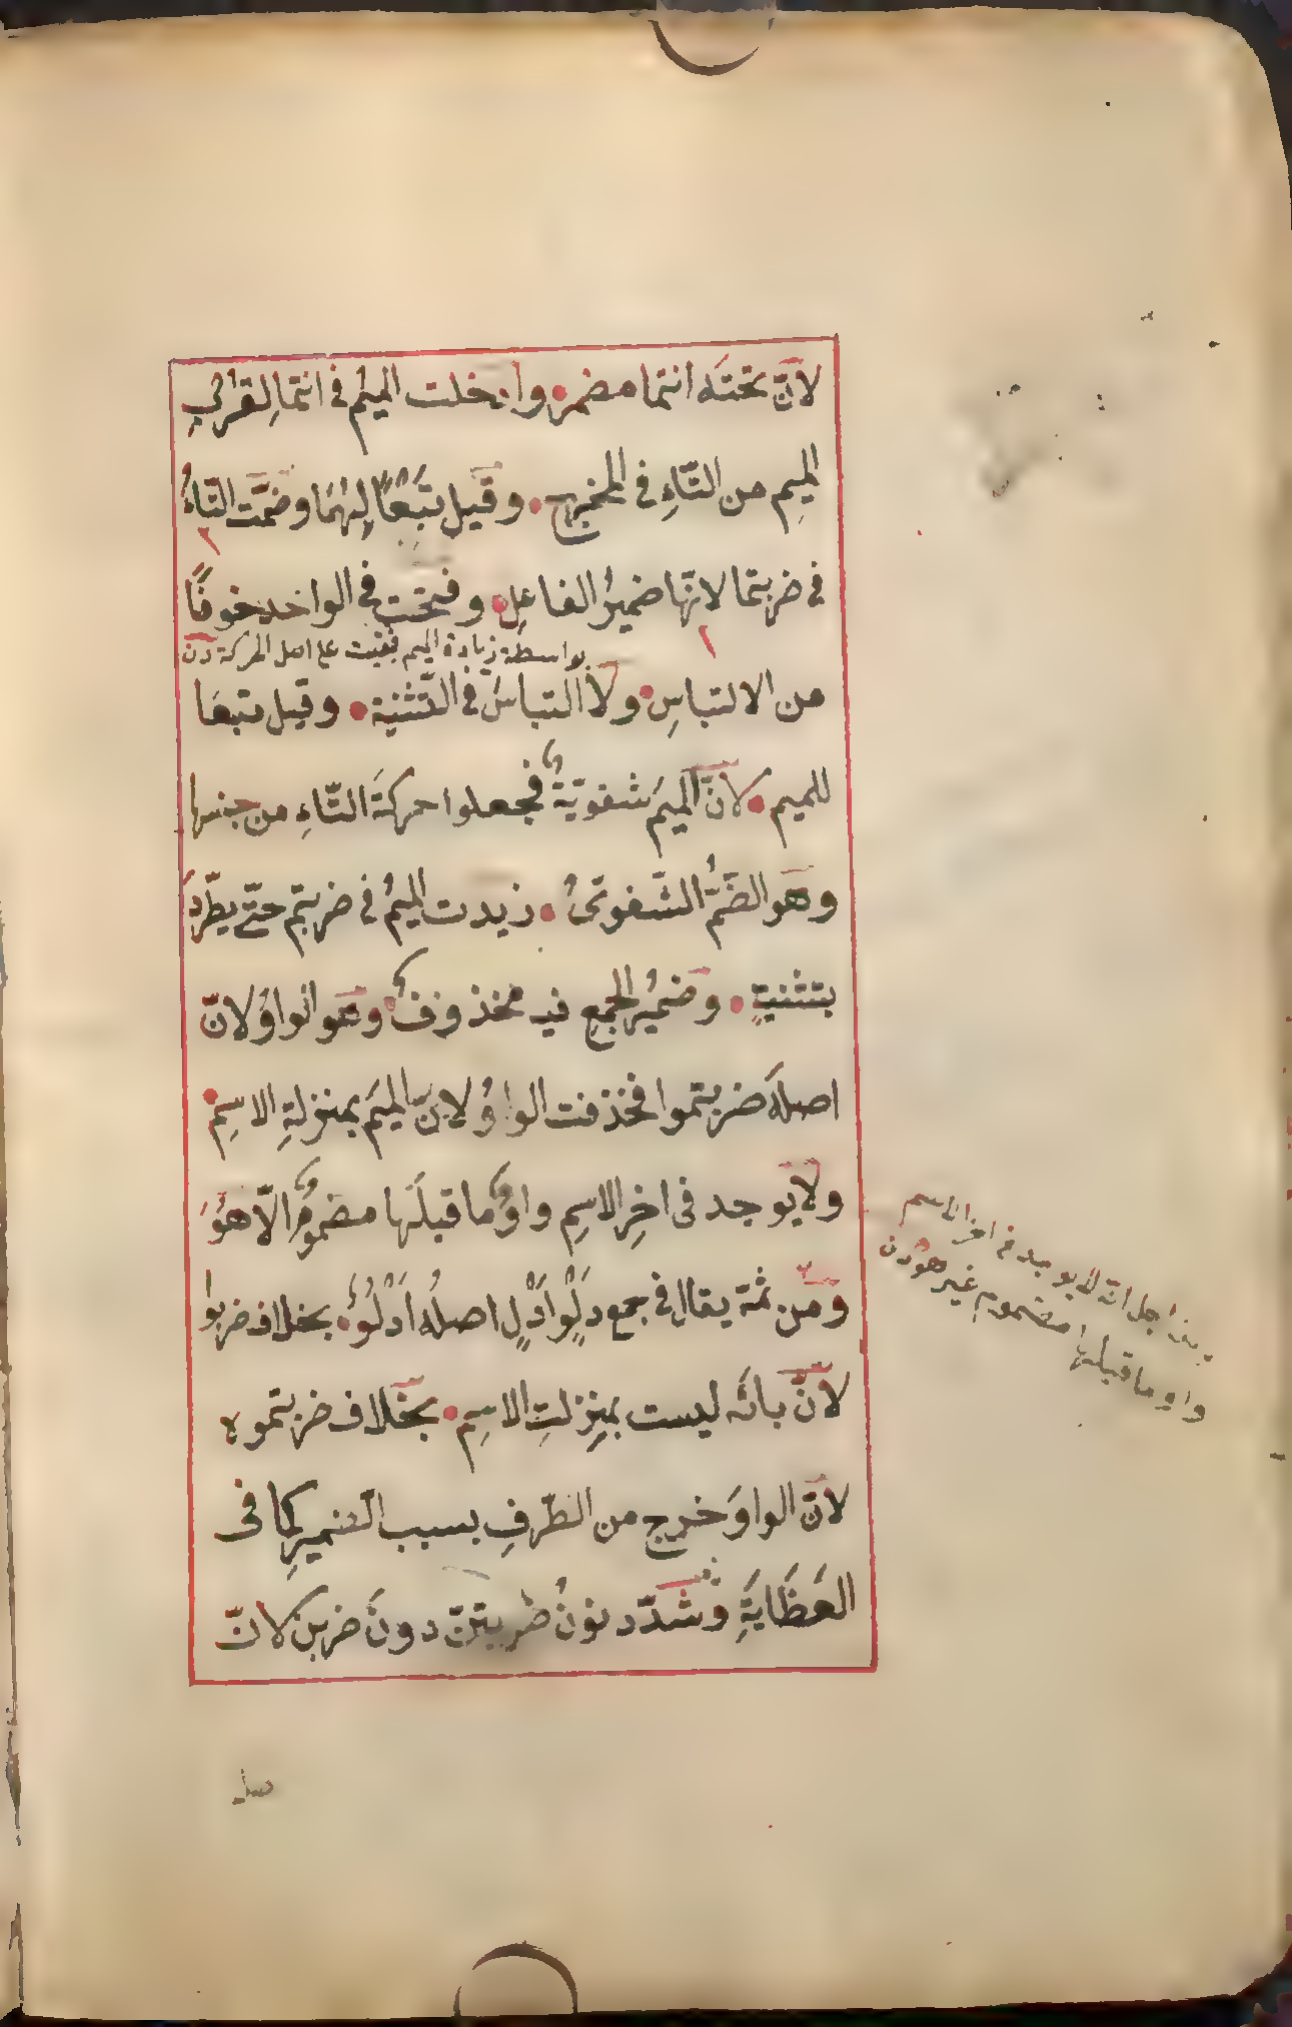 لانّ تحتَه انتما مضمر وادخلت الميمُ فى انتما لِقرُبِ
الميِمِ من التّاءِ فى المخرجِ وقيل تَبَعْاً لِهُمَا وضمّت التّاءُ
فى ضربتما لانّها ضميرُ الفاعلِ وفتحت فى الواحد خوفًا
بواسطة زيادة الميم فبقيت على اصل الحركة
من الالتباسِ ولا التباسَ فى التّثنية وقيل تبعَا
للميم لانّ الميمَ شفويّةٌ فجعلوا حركةَ التّاءِ من جنسها
وهو الضَّمُّ الشّفوىُّ زيدت الميمُ فى ضربتم حتّى يطّرِدَ
بتثنيةٍ وضميرُ الجمعِ فيه محذوفٌ وهو الواوُ لانّ
اصلَه ضربتموا فحذفت الواوُ لانّ الميمَ بمنزلةِ الاسِمِ
ولا يوجد فى اخِرِ الاسِمِ واوٌ ما قبلَها مضمُومٌ الّا هُوَ
ومن ثمة يقال فى جمعِ دلْوٍ اَدْلٍ اصلُه اَدْلُوٌ بخلاف ضربوا
لانّ بائَه ليست بمنزلتِ الاسِمِ بخلاف ضربتموه
لانّ الواوَ خرج من الطّرفِ بسبب الضّميرِ كما فى
العَظَايَةِ وشدّد نونُ ضربتنّ دونَ ضربن لانّ
من اجل انّه لا يوجد فى اخر الاسم
واو ما قبلها مضموم غير هو